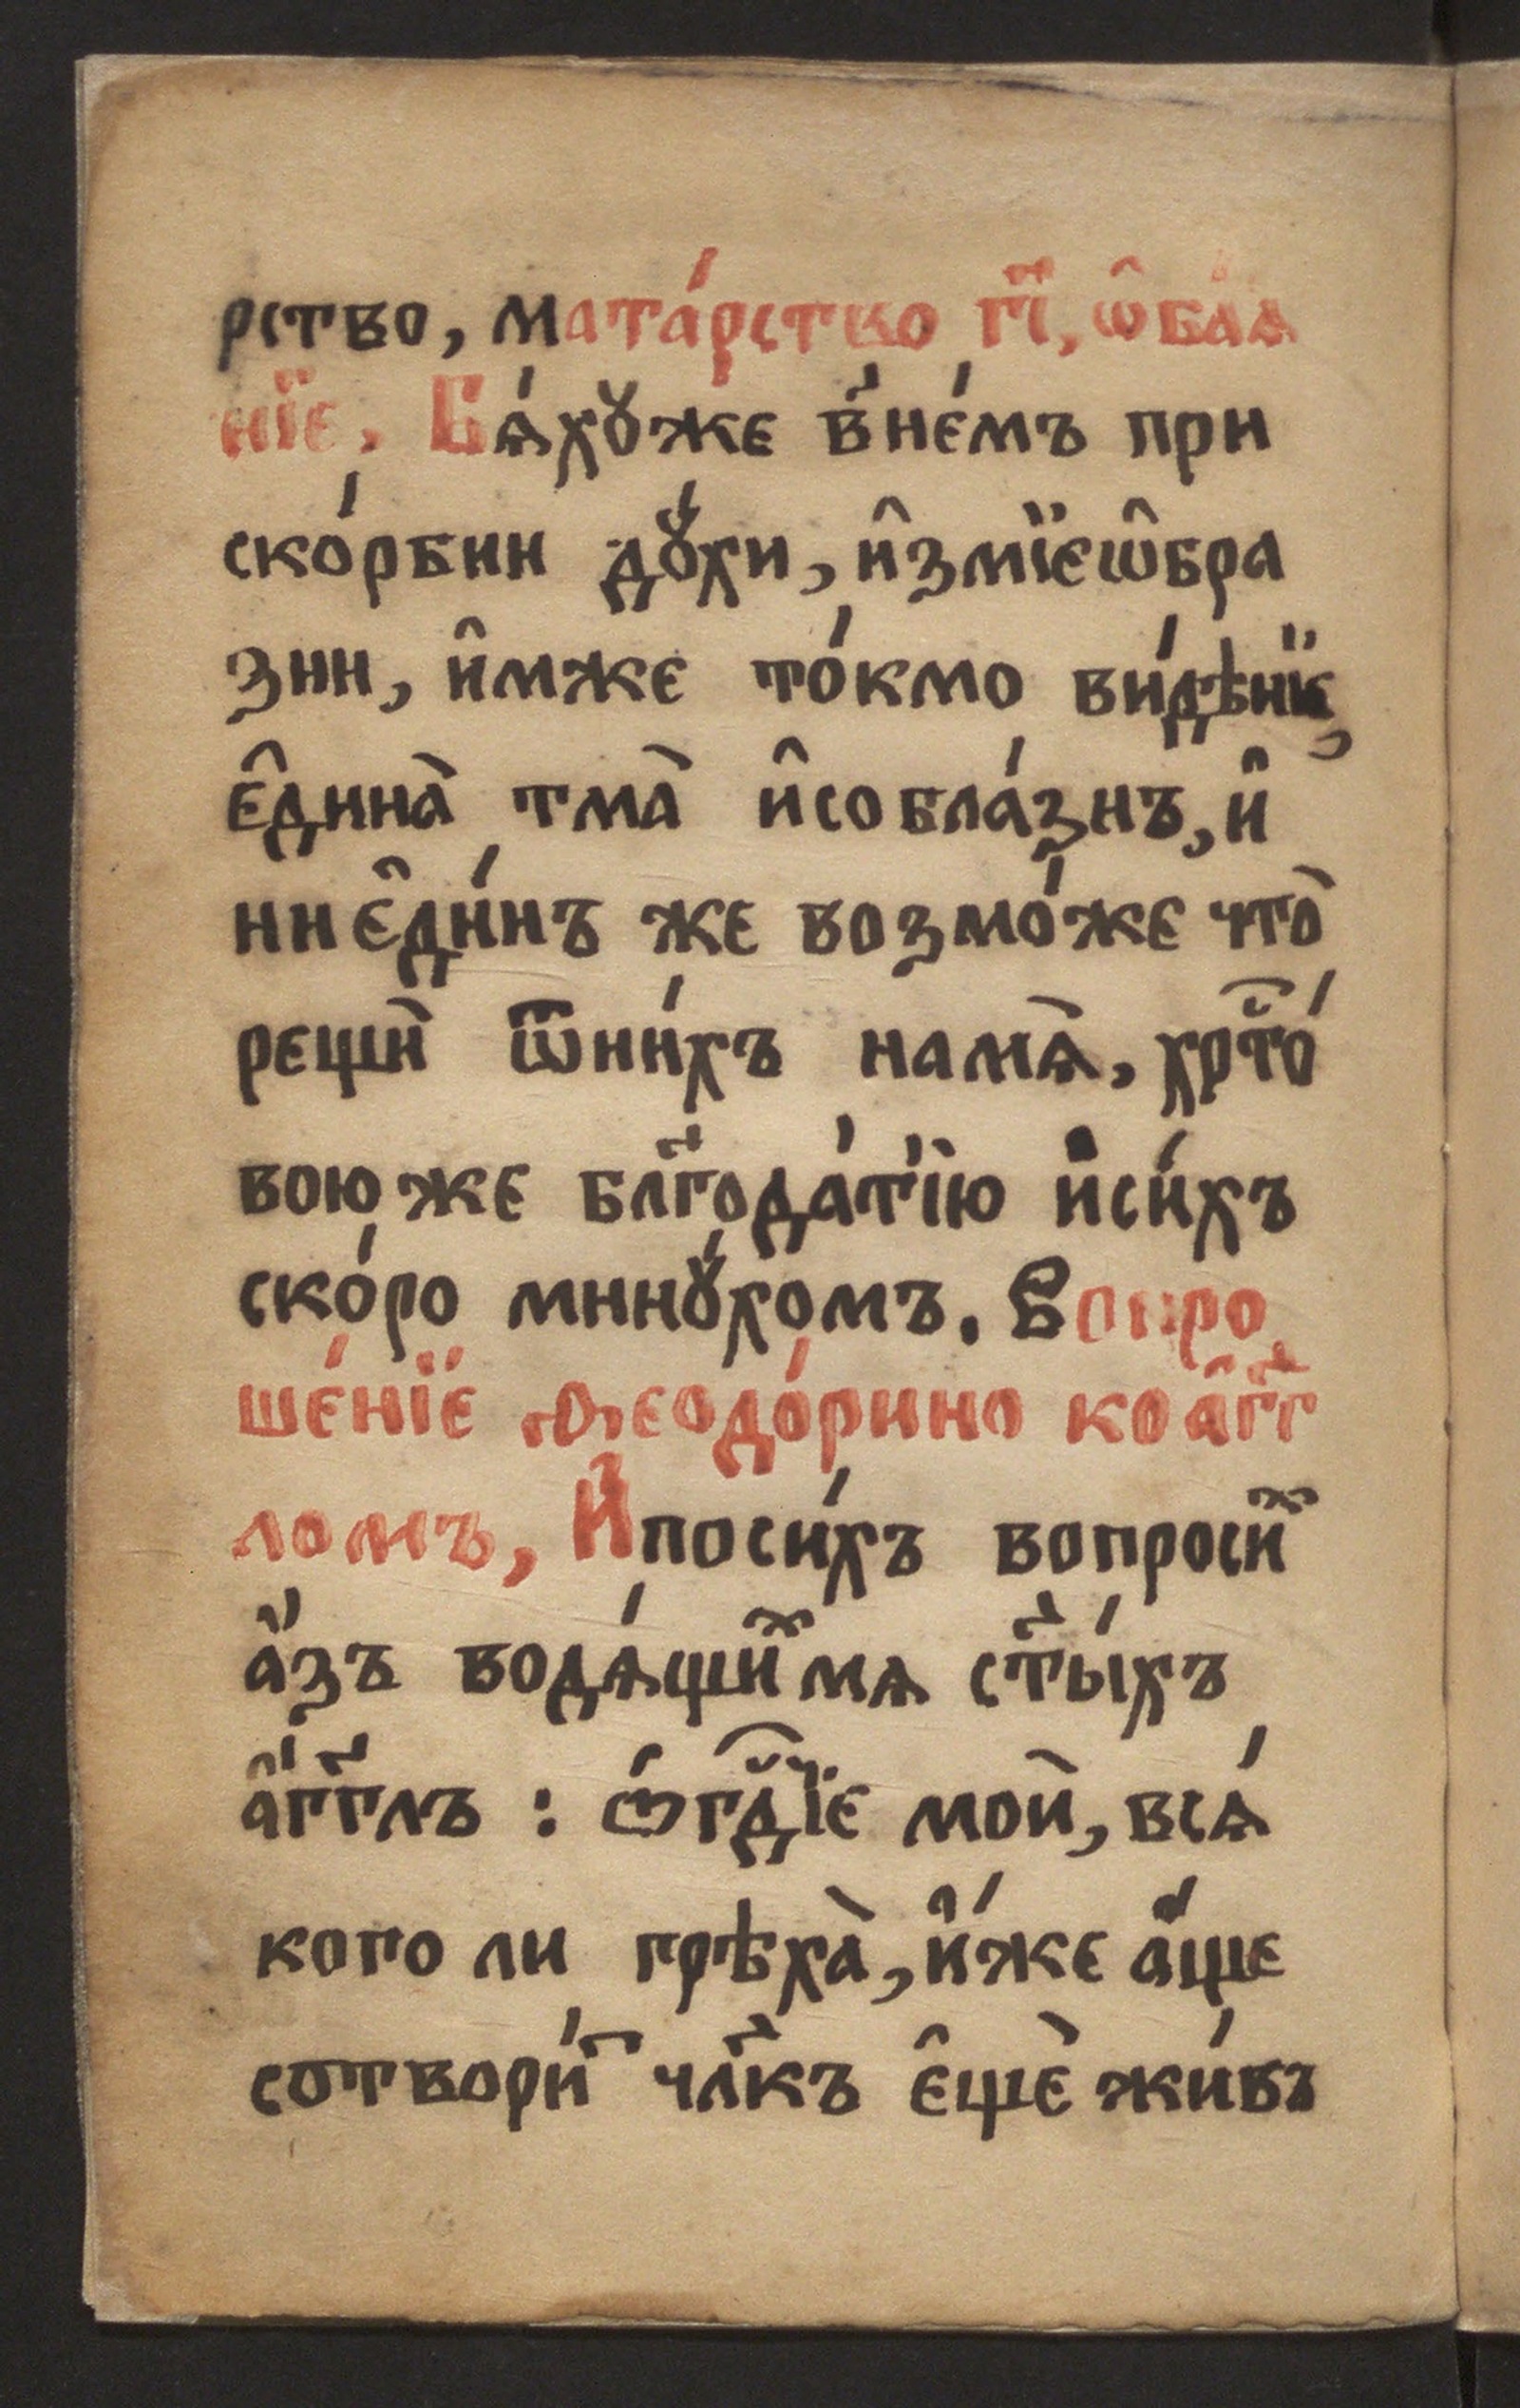 рство, мата́рство г҃і, ѡ̑баѧ́
нїе. Бѧ́хꙋже в̾не́мъ при
ско́рбнн дꙋ́хи, и҆змїеѡ̑бра
знн, и҆мже то́кмо ви́дѣнїѥ,
є҆дина̀ тма̀ и҆собла́знъ, и҆
ниє҆ди́нъ же возмо́же что̀
рещѝ ѿни́хъ намѧ̀, хрⷭ҇то́
вою же бл҃года́тїю и҆си́хъ
ско́ро минꙋ́хомъ. Вопро
ше́нїе ѳеодо́рино коа҆г҃г
ломъ, И҆поси́хъ вопросиⷯ
а҆́зъ водѧ́щиⷯ мѧ ст҃ы́хъ
а҆́гг҃лъ : ѽ гдⷭ҇їе моѝ, всѧ́
кого ли грѣха̀, и҆́же а҆́ще
сотвори́ⷮ чл҃къ є҆щѐ жи́въ